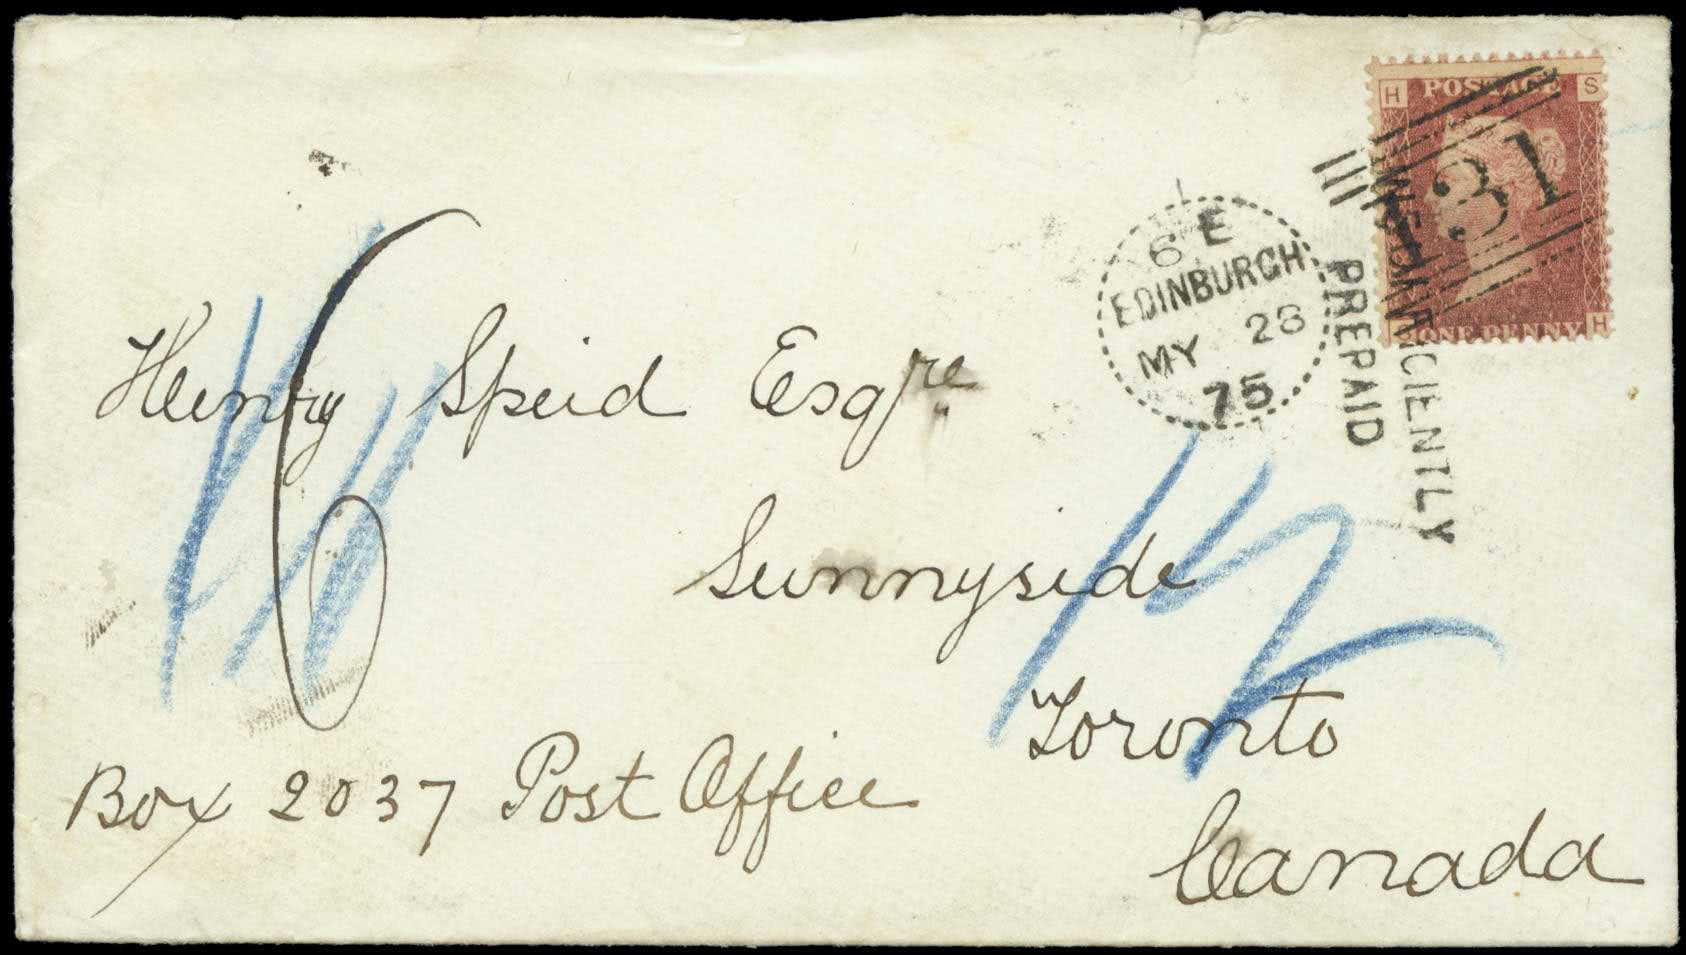 H POSTAGE S
131
S ONE PENNY H
INSUFFICIENTLY
PREPAID
6 E
EDINBURGH
MY 28
75
6
Henry Speid Esqre
Sunnyside
Toronto
Canada
Box 2037 Post Office